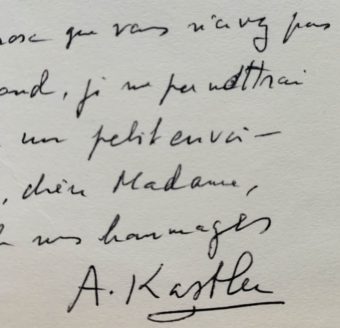 que vous n'avez pas
je me permettrai
un petit envoi —
, chère Madame,
mes hommages
A. Kastler